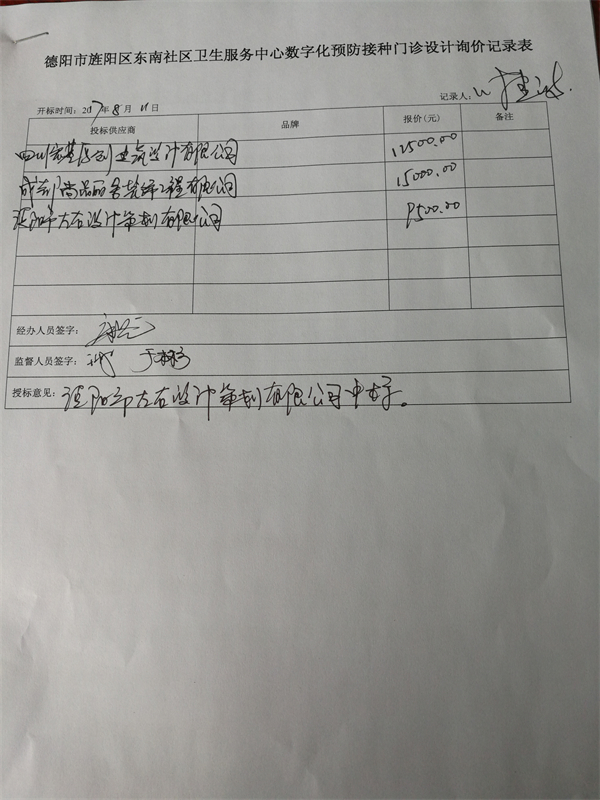 德阳市旌阳区东南社区卫生服务中心数字化预防接种门诊设计询价记录表
记录人：
开标时间：2017年8月11日
投标供应商 品牌 报价(元) 备注
四川 建筑设计有限公司 12500.00
成都尚品 装饰工程有限公司 15000.00
德阳市左右设计策划有限公司 9500.00
经办人员签字：
监督人员签字：
授标意见：德阳市左右设计策划有限公司中标。